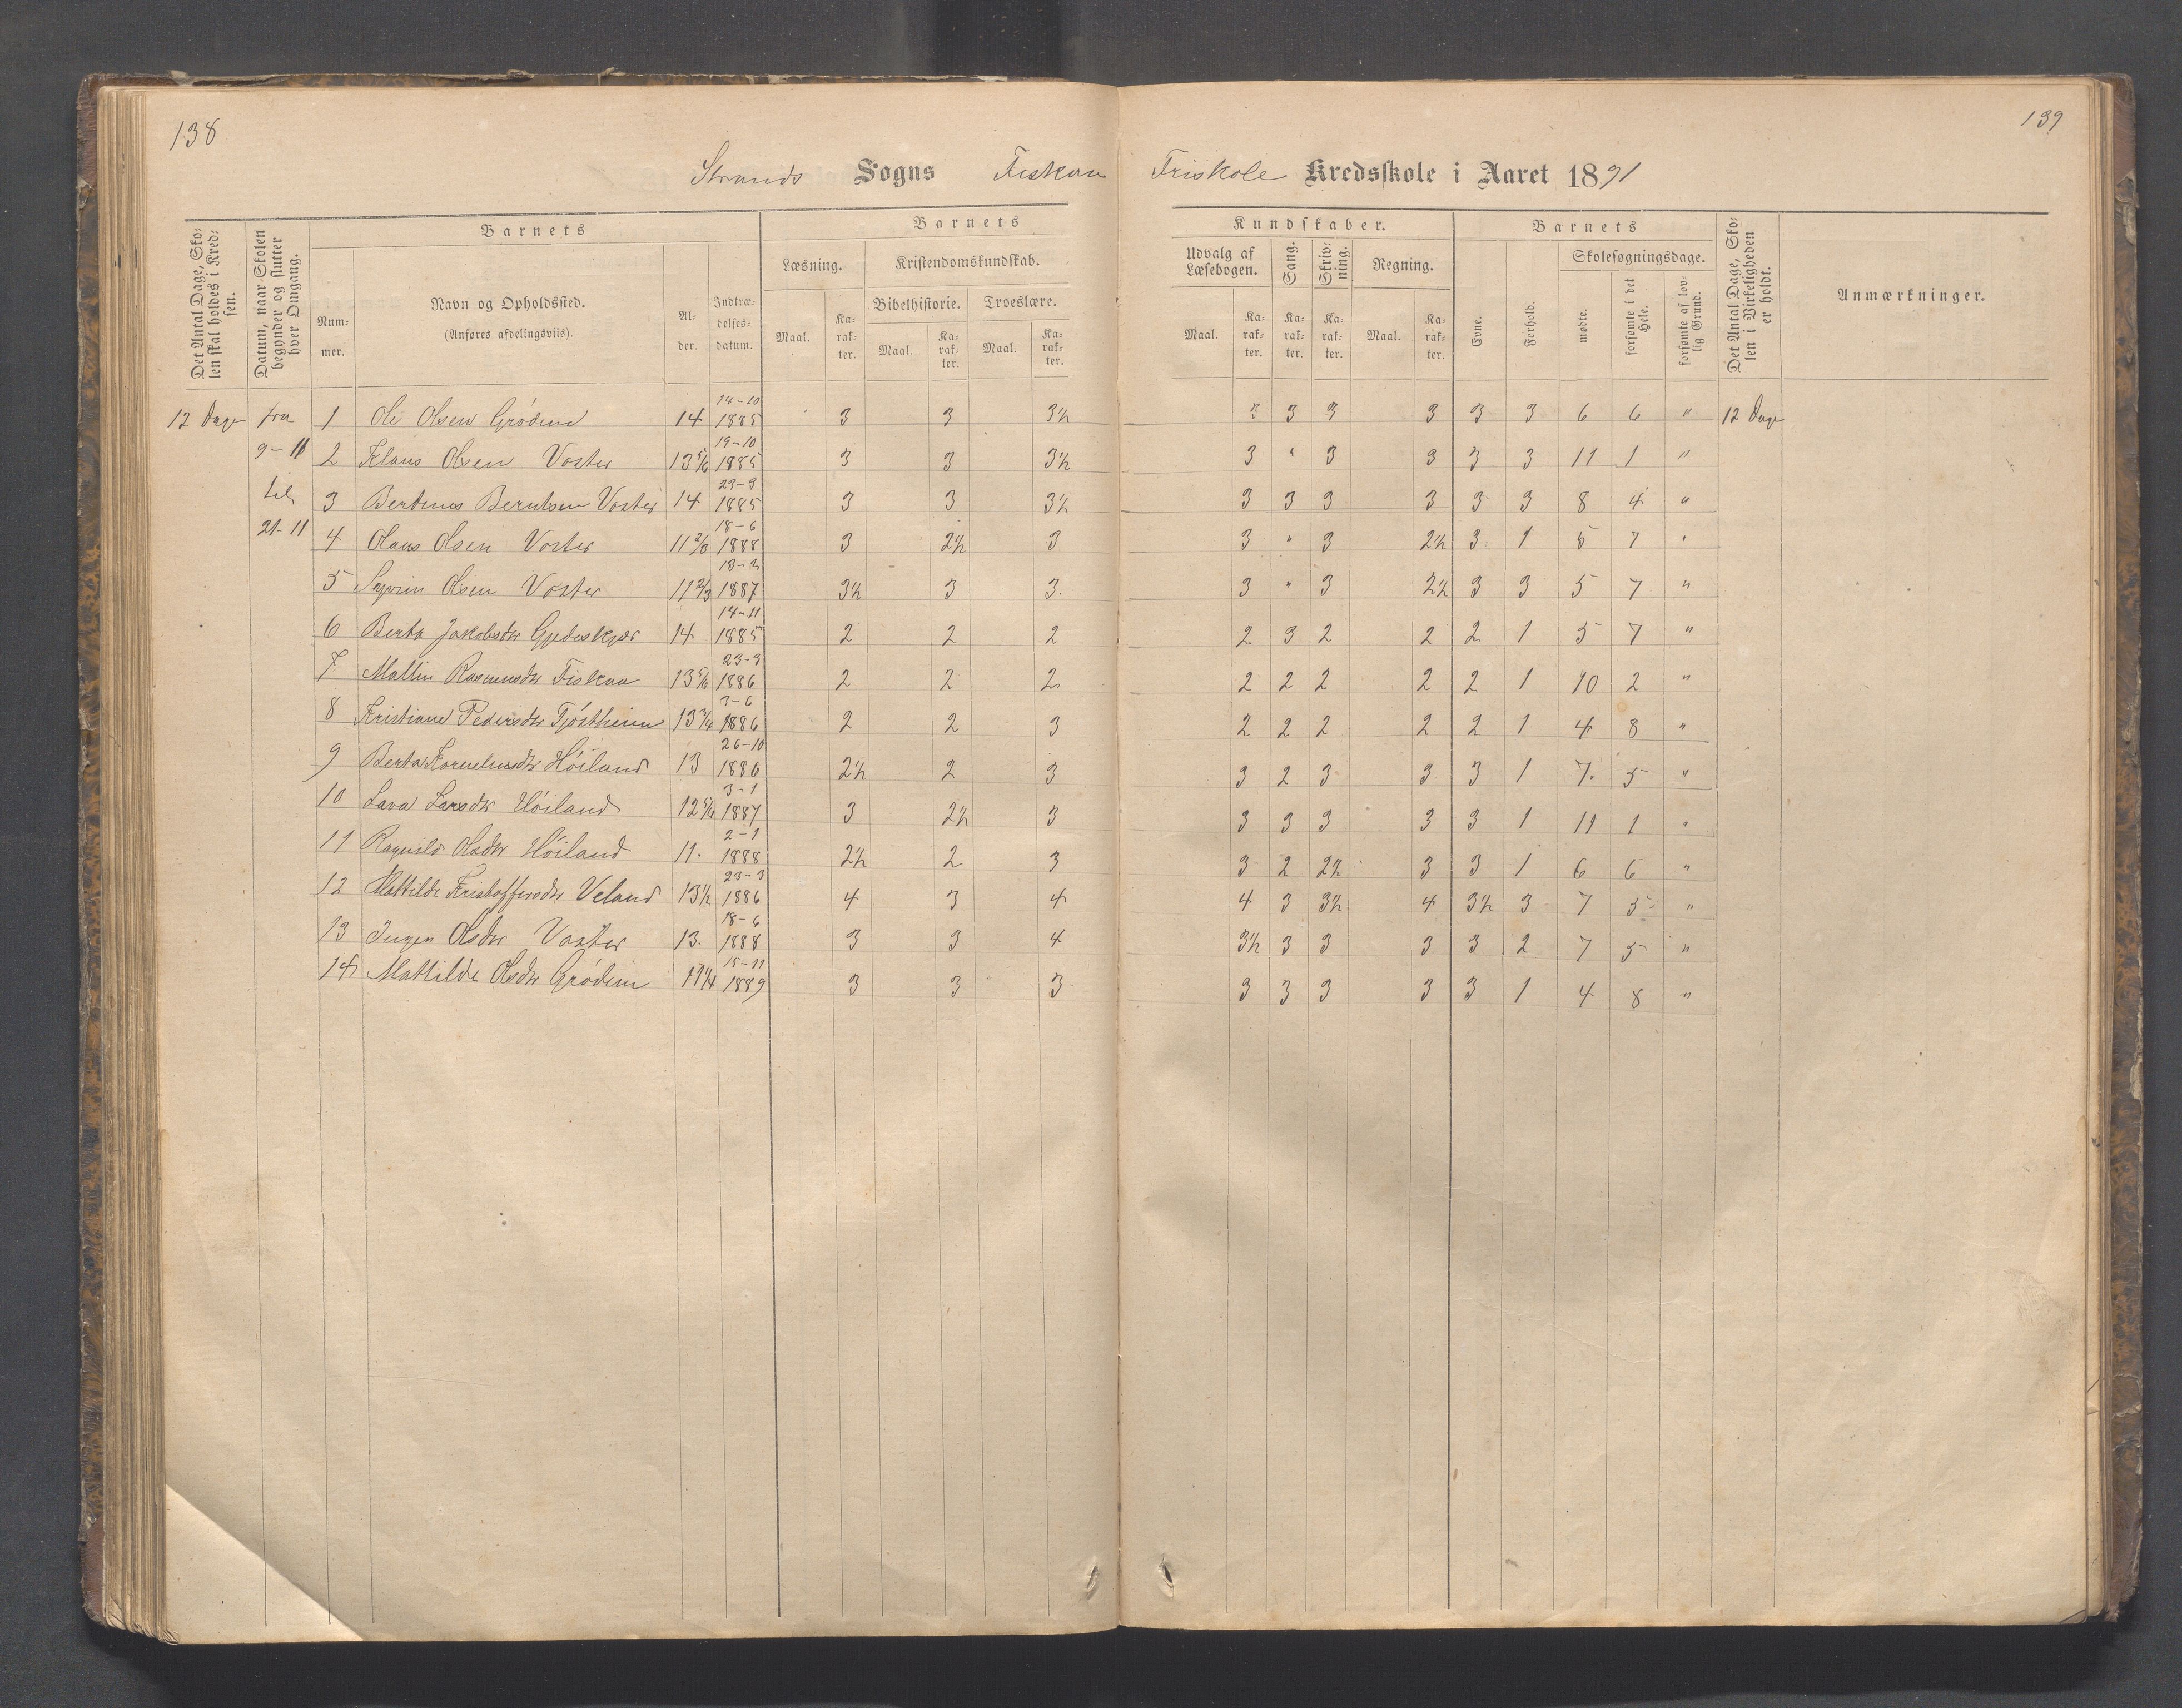 138
139
Strands Sogns Fiskaa Friskole Kredsskole i Aaret 1891
Det Antal Dage, Skolen skal holdes i Kredsen.
Datum, naar Skolen begynder og slutter hver Omgang.
Barnets
Nummer.
Navn og Opholdssted.
(Anføres afdelingsviis).
Alder.
Indtrædelsesdatum.
Barnets Kundskaber.
Læsning.
Maal. Karakter.
Kristendomskundskab.
Bibelhistorie. Troeslære.
Maal. Karakter. Maal. Karakter.
Udvalg af Læsebogen.
Maal. Karakter.
Sang.
Karakter.
Skrivning.
Karakter.
Regning.
Maal. Karakter.
Barnets
Evne. Forhold.
Skolesøgningsdage.
mødte. forsømte i det Hele. forsømte af lovlig Grund.
Det Antal Dage, Skolen i Virkeligheden er holdt.
Anmærkninger.
12 Dage fra 1 Ole Olsen Grødem 14 14-10 1885 3 3 3½ 3 3 3 3 3 3 6 6 " 12 Dage
9-11 2 Klaus Olsen Voster 13 5/6 19-10 1885 3 3 3½ 3 " 3 3 3 3 11 1 "
til 3 Bertinus Berntsen Voster 14 23-3 1885 3 3 3½ 3 3 3 3 3 3 8 4 "
21-11 4 Olaus Olsen Voster 11 2/3 18-6 1888 3 2½ 3 3 " 3 2½ 3 1 5 7 "
5 Olsen Voster 11 2/3 1887 3½ 3 3 3 " 3 2½ 3 3 5 7 "
6 Berta Jakobsdtr Gjedeskjær 14 14-11 1885 2 2 2 2 3 2 2 2 1 5 7 "
7 Mallin Rasmusdtr Fiskaa 13 5/6 23-3 1886 2 2 2 2 2 2 2 2 1 10 2 "
8 Kristiane Pedersdtr Tjøstheim 13 3/4 3-6 1886 2 2 3 2 2 2 2 2 1 4 8 "
9 Berta Korneliusdtr Høiland 13 26-10 1886 2½ 2 3 3 2 3 3 3 1 7 5 "
10 Lava Larsdtr Høiland 12 5/6 3-1 1887 3 2½ 3 3 3 3 3 3 1 11 1 "
11 Ragnild Olsdtr Høiland 11. 2-1 1888 2½ 2 3 3 2 2½ 3 3 1 6 6 "
12 Mattilde Kristoffersdtr Veland 13½ 23-3 1886 4 3 4 4 3 3½ 4 3½ 3 7 5 "
13 Ingen Olsdtr Voster 13. 18-6 1888 3 3 4 3½ 3 3 3 3 2 7 5 "
14 Mattilde Olsdtr Grødem 11 1/4 15-11 1889 3 3 3 3 3 3 3 3 1 4 8 "